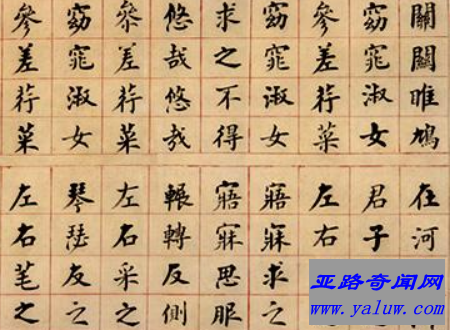 關關雎鳩在河
窈窕淑女君子
參差荇菜左右
窈窕淑女寤寐求之
求之不得寤寐思服
悠哉悠哉輾轉反側
參差荇菜左右采之
窈窕淑女琴瑟友之
參差荇菜左右芼之
亚路奇闻网
www.yaluw.com